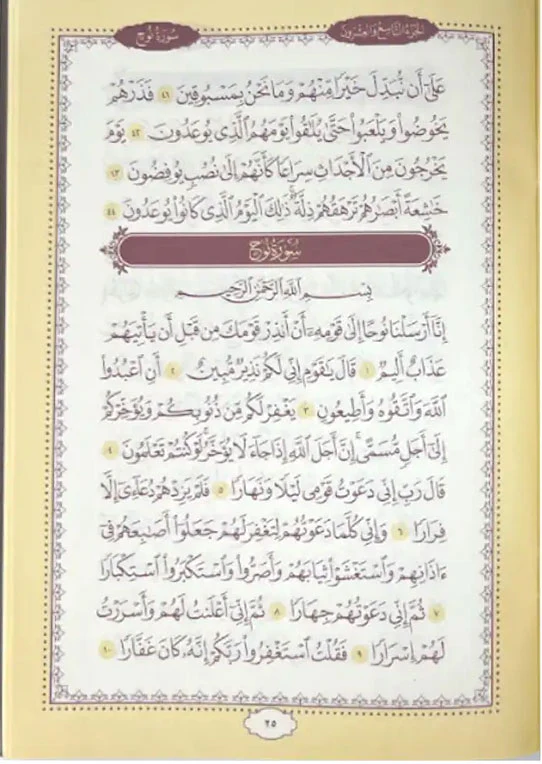 الجزء التاسع والعشرون
سورة نوح
عَلَىٰٓ أَن نُّبَدِّلَ خَيْرًا مِّنْهُمْ وَمَا نَحْنُ بِمَسْبُوقِينَ ٤١ فَذَرْهُمْ
يَخُوضُوا۟ وَيَلْعَبُوا۟ حَتَّىٰ يُلَٰقُوا۟ يَوْمَهُمُ ٱلَّذِى يُوعَدُونَ ٤٢ يَوْمَ
يَخْرُجُونَ مِنَ ٱلْأَجْدَاثِ سِرَاعًا كَأَنَّهُمْ إِلَىٰ نُصُبٍ يُوفِضُونَ ٤٣
خَٰشِعَةً أَبْصَٰرُهُمْ تَرْهَقُهُمْ ذِلَّةٌ ۚ ذَٰلِكَ ٱلْيَوْمُ ٱلَّذِى كَانُوا۟ يُوعَدُونَ ٤٤
سورة نوح
بِسْمِ ٱللَّهِ ٱلرَّحْمَٰنِ ٱلرَّحِيمِ
إِنَّآ أَرْسَلْنَا نُوحًا إِلَىٰ قَوْمِهِۦٓ أَنْ أَنذِرْ قَوْمَكَ مِن قَبْلِ أَن يَأْتِيَهُمْ
عَذَابٌ أَلِيمٌ ١ قَالَ يَٰقَوْمِ إِنِّى لَكُمْ نَذِيرٌ مُّبِينٌ ٢ أَنِ ٱعْبُدُوا۟
ٱللَّهَ وَٱتَّقُوهُ وَأَطِيعُونِ ٣ يَغْفِرْ لَكُم مِّن ذُنُوبِكُمْ وَيُؤَخِّرْكُمْ
إِلَىٰٓ أَجَلٍ مُّسَمًّى ۚ إِنَّ أَجَلَ ٱللَّهِ إِذَا جَآءَ لَا يُؤَخَّرُ ۖ لَوْ كُنتُمْ تَعْلَمُونَ ٤
قَالَ رَبِّ إِنِّى دَعَوْتُ قَوْمِى لَيْلًا وَنَهَارًا ٥ فَلَمْ يَزِدْهُمْ دُعَآءِىٓ إِلَّا
فِرَارًا ٦ وَإِنِّى كُلَّمَا دَعَوْتُهُمْ لِتَغْفِرَ لَهُمْ جَعَلُوٓا۟ أَصَٰبِعَهُمْ فِىٓ
ءَاذَانِهِمْ وَٱسْتَغْشَوْا۟ ثِيَابَهُمْ وَأَصَرُّوا۟ وَٱسْتَكْبَرُوا۟ ٱسْتِكْبَارًا
٧ ثُمَّ إِنِّى دَعَوْتُهُمْ جِهَارًا ٨ ثُمَّ إِنِّىٓ أَعْلَنتُ لَهُمْ وَأَسْرَرْتُ
لَهُمْ إِسْرَارًا ٩ فَقُلْتُ ٱسْتَغْفِرُوا۟ رَبَّكُمْ إِنَّهُۥ كَانَ غَفَّارًا ١٠
٢٥